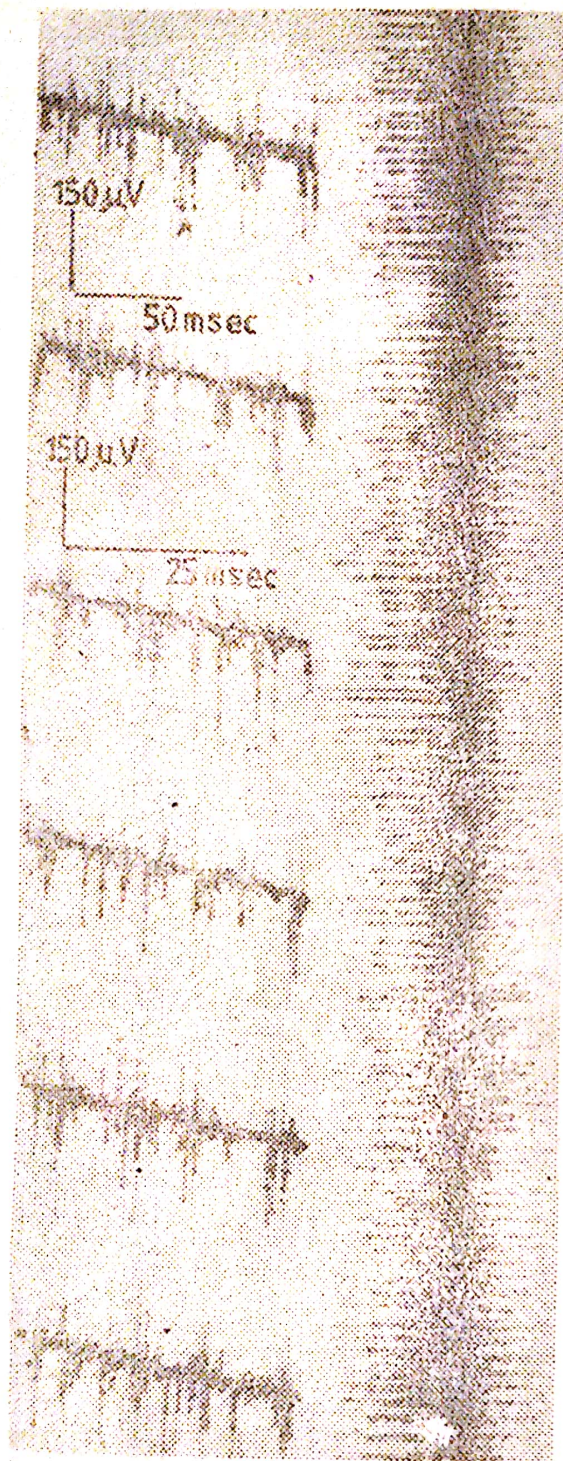 150μV
50 msec
150μV
25 msec